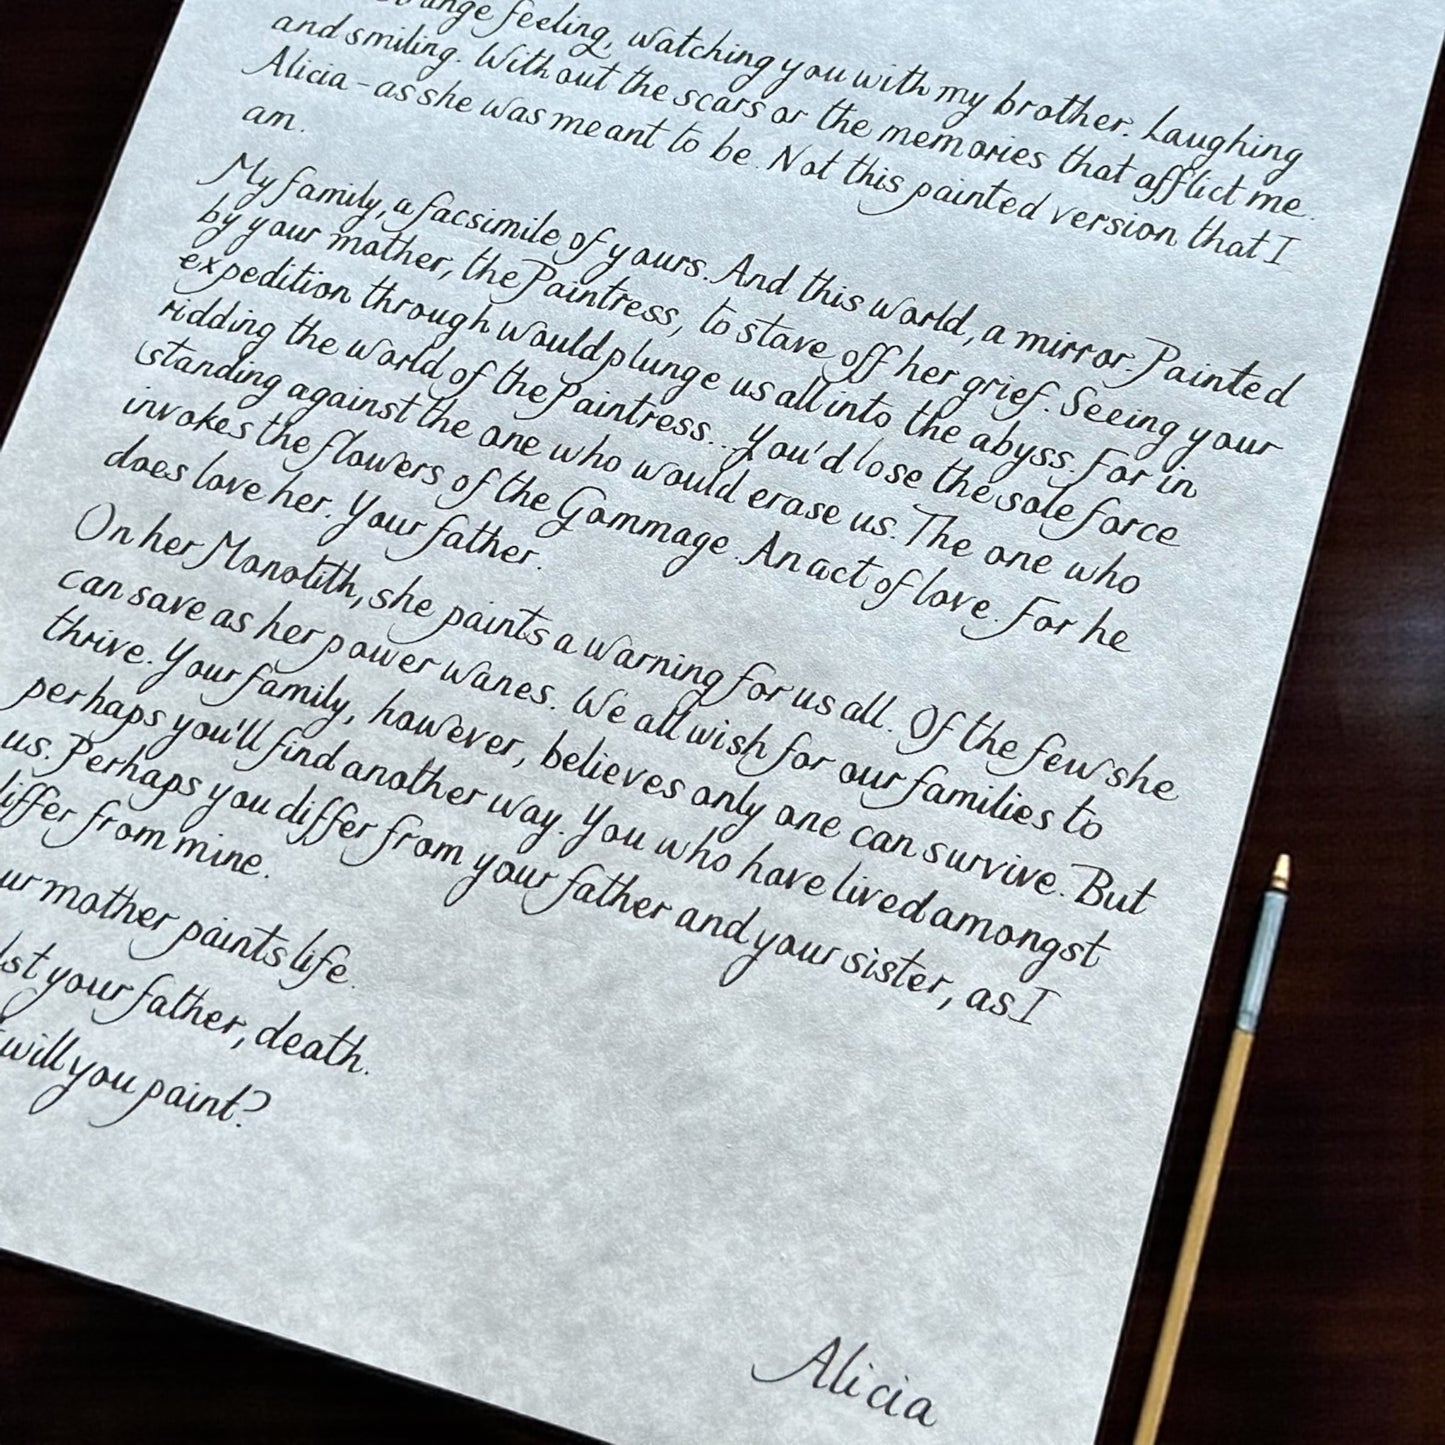 feeling, watching you with my brother. Laughing
and smiling. Without the scars or the memories that afflict me.
Alicia - as she was meant to be. Not this painted version that I
am.
My family, a facsimile of yours. And this world, a mirror. Painted
by your mother, the Paintress, to stave off her grief. Seeing your
expedition through would plunge us all into the abyss. For in
ridding the world of the Paintress... You'd lose the sole force
standing against the one who would erase us. The one who
invokes the flowers of the Gommage. An act of love. For he
does love her. Your father.
On her Monolith, she paints a warning for us all. Of the few she
can save as her power wanes. We all wish for our families to
thrive. Your family, however, believes only one can survive. But
perhaps you'll find another way. You who have lived amongst
us. Perhaps you differ from your father and your sister, as I
differ from mine.
mother paints life.
your father, death.
will you paint?
Alicia